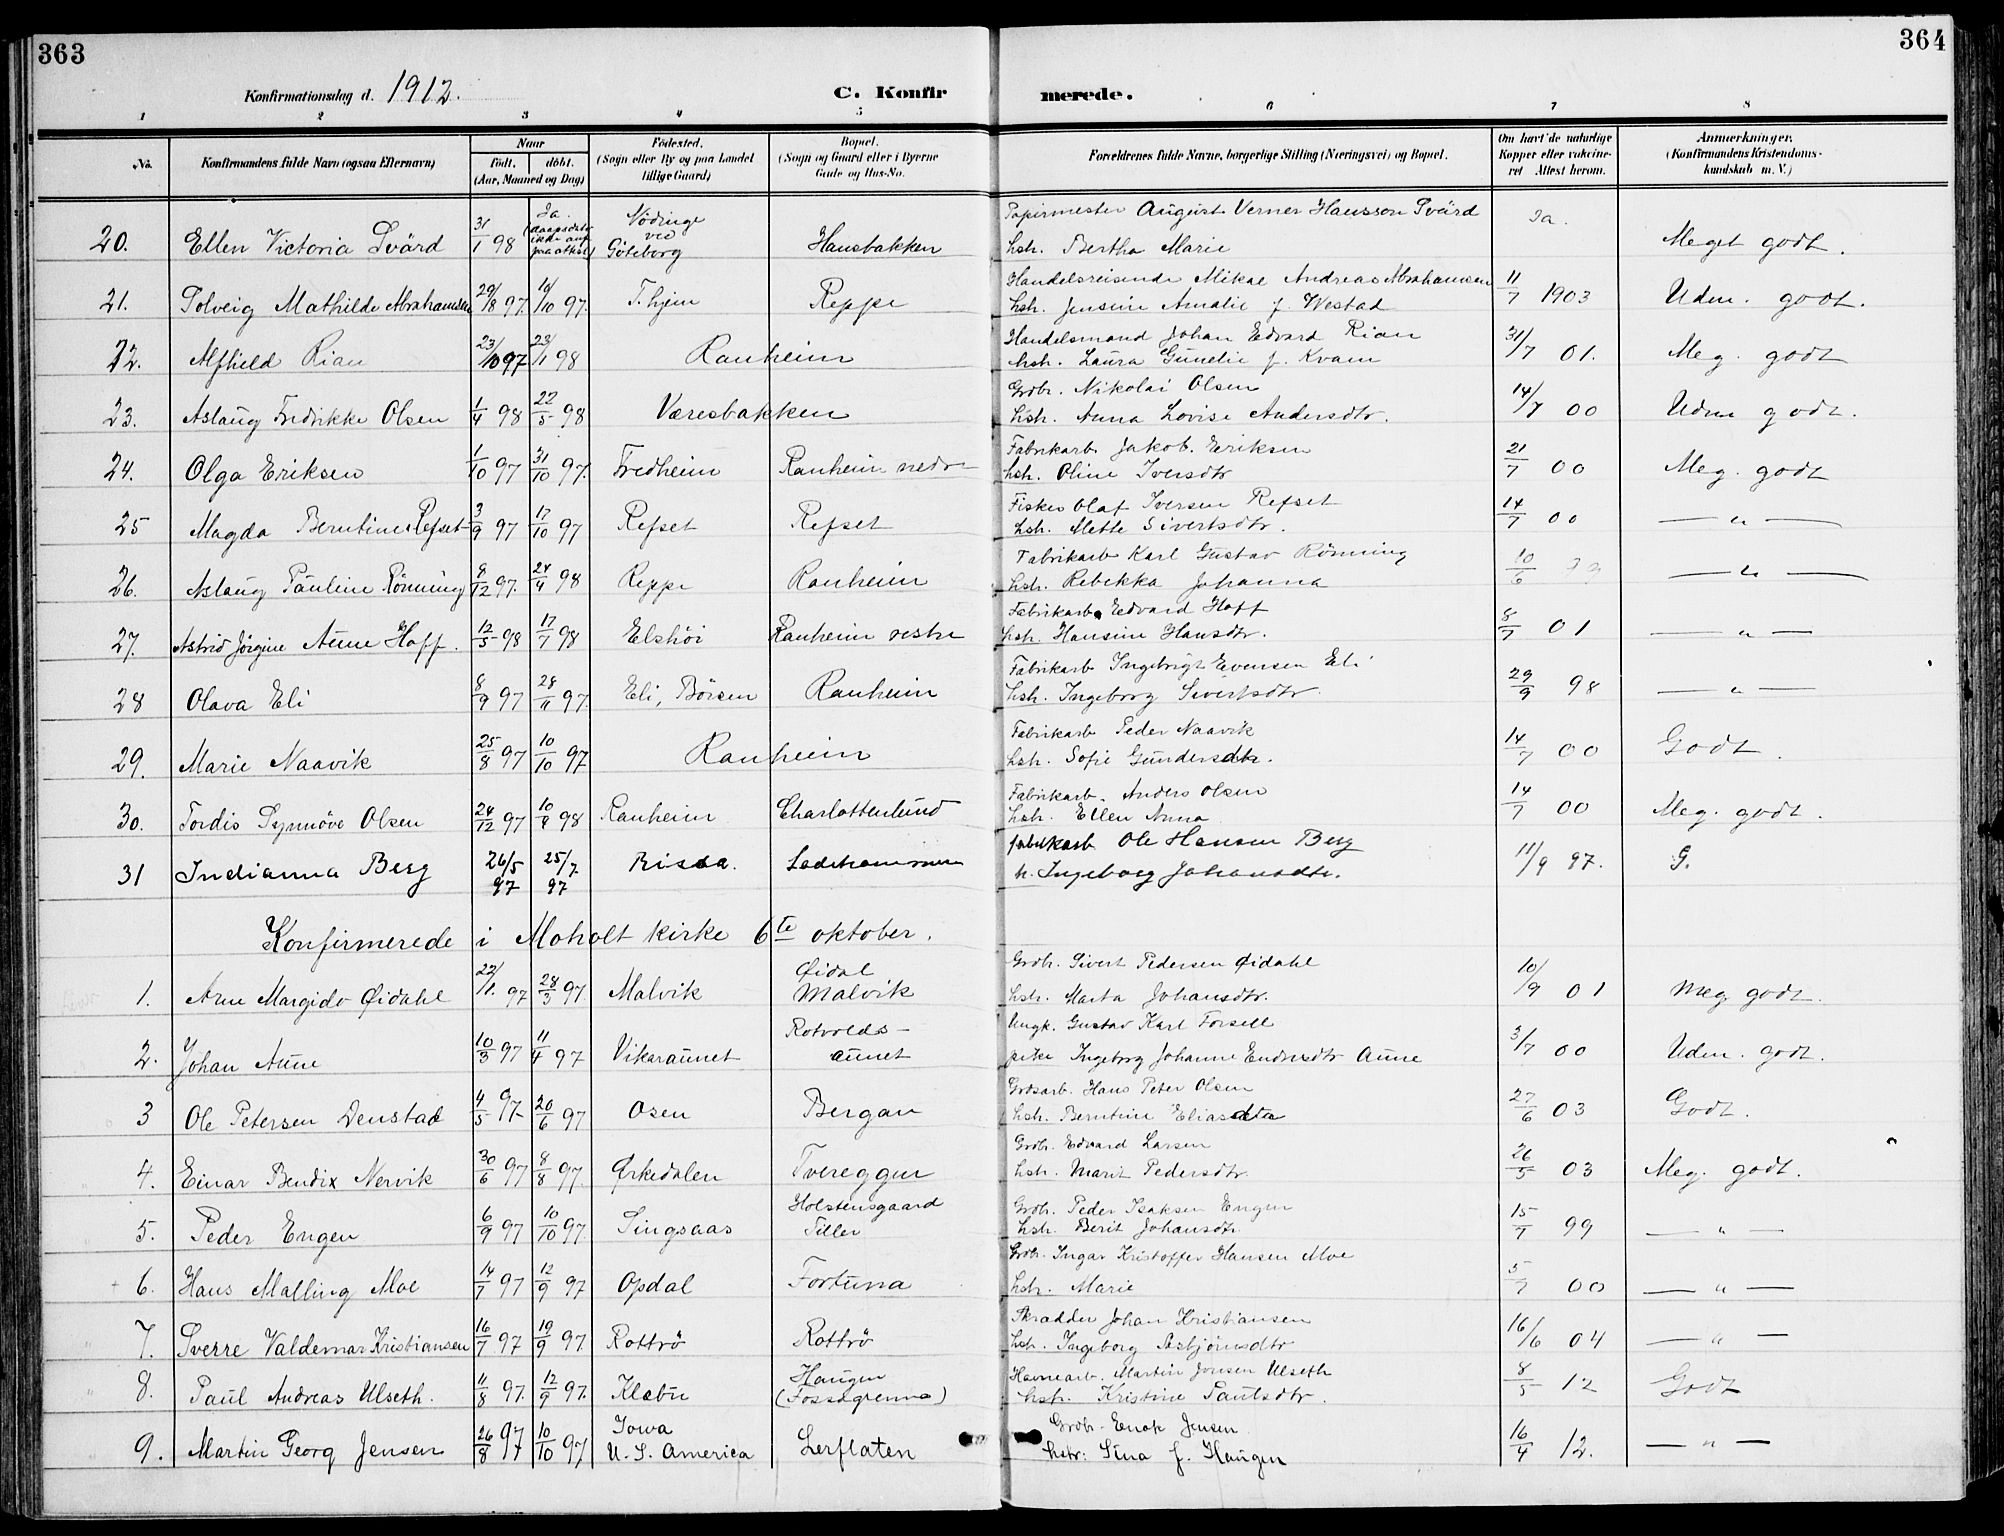 363
364
Konfirmationsdag d. 1912.
C. Konfirmerede.
1 2 3 4 5 6 7 8
No.
Konfirmandens fulde Navn (ogsaa Efternavn)
Naar
født. døbt.
(Aar, Maaned og Dag)
Fødested.
(Sogn eller By og paa Landet tillige Gaard)
Bopæl.
(Sogn og Gaard eller i Byerne Gade og Hus-No.
Forældrenes fulde Navne, borgerlige Stilling (Næringsvei) og Bopæl.
Om havt de naturlige Kopper eller vaccineret Attest herom.
Anmærkninger.
(Konfirmandens Kristendomskundskab m. V.)
20. Ellen Victoria Svärd 31/1 98 Ja. (daapsdato ikke anf. paa attest) Nödinge ved Göteborg Hansbakken Papirmester August Verner Hansson Svärd hstr. Bertha Marie Ja. Meget godt.
21. Solveig Mathilde Abrahamsen 29/8 97. 10/10 97. T.hjem Reppe Handelsreisende Mikae Andreas Abrahamsen hstr. Jensine Amalie f. Westad 11/7 1903 Udm. godt.
22. Alfhild Rian 23/10 97 23/1 98 Ranheim Handelsmand Johan Edvard Rian hstr. Laura Gunelie f. Kvam 31/7 01. Meg. godt
23. Aslaug Fredrikke Olsen 1/4 98 22/5 98 Væresbakken Grdbr. Nikolai Olsen hstr. Anna Lovise Andersdtr. 14/7 00 Udm godt.
24. Olga Eriksen 1/10 97 31/10 97. Fredheim Ranheim nedre Fabrikarb. Jakob Eriksen hstr. Oline Iversdtr 21/7 00 Meg. godt
25 Magda Berntine Refset 3/9 97 17/10 97 Refset Refset Fisker Olaf Iversen Refset hstr. Mette Sivertsdtr. 14/7 00 — " —
26. Aslaug Pauline Rönning 8/12 97. 24/4 98 Reppe Ranheim Fabrikarb Karl Gustav Rönning hstr. Rebekka Johanna 10/6 99 — " —
27. Astrid Jörgine Aune Hoff. 12/5 98 17/7 98 Elshöi Ranheim vestre Fabrikarb. Edvard Hoff hstr. Hansine Hansdtr. 8/7 01 — " —
28 Olava Eli 8/9 97 28/11 97. Eli, Börsen Ranheim Fabrikarb Ingebrigt Evensen Eli hstr. Ingeborg Sivertsdtr. 29/9 98 — " —
29. Marie Naavik 25/8 97 10/10 97 Ranheim Fabrikarb Peder Naavik hstr. Sofie Gundersdtr. 14/7 00 Godt.
30. Tordis Synnöve Olsen 24/12 97 10/4 98 Ranheim Charlottenlund Fabrikarb. Anders Olsen hstr. Ellen Anna 14/7 00 Meg. godt.
31 Indianna Berg 26/5 97 25/7 97 Rissa. Ladehammeren fabrikarb Ole Hansen Berg h. Ingeborg Johansdtr. 11/9 97. G.
Konfirmerede i Moholt kirke 6te oktober.
1. Arne Margido Øidahl 22/1. 97 28/3 97. Malvik Øidal Malvik Grdbr. Sivert Pedersen Øidahl hstr. Marta Johansdtr. 10/9 01 Meg godt.
2. Johan Aune 10/3 97 11/4 97 Vikaraunet Rotvolds-aunet Ungk. Gustav Karl Forsell pike Ingeborg Johanne Endresdtr Aune 3/7 00 Udm. godt.
3 Ole Petersen Denstad 4/5 97 20/6 97 Osen Bergan Grdsarb. Hans Peter Olsen hstr. Berntine Eliasdtr 27/6 03 Godt.
4. Einar Bendix Nervik 30/6 97 8/8 97. Ørkedalen Tvereggen Grdbr. Edvard Larsen hstr. Marit Pedersdtr. 26/5 03 Meg. godt.
5. Peder Engen 6/9 97 10/10 97. Singsaas Holstensgaard Tiller Grdbr. Peder Isaksen Engen hstr. Berit Johansdtr. 15/7 99 — " —
6. Hans Malling Moe 14/7 97 12/9 97 Opdal Fortuna Grdbr. Ingar Kristoffer Hansen Moe hstr. Marie 5/7 00 — " —
7. Sverre Valdemar Kristiansen 16/7 97 19/9 97 Rottrö Rottrö Skradder Johan Kristiansen hstr. Ingeborg Asbjörnsdtr 16/6 04 — " —
8. Paul Andreas Ulseth. 11/8 97. 12/9 97. Klæbu Haugen (Fossegrenna) Havnearb. Martin Jonsen Ulseth hstr. Kristine Paulsdtr. 8/5 12 Godt
9. Martin Georg Jensen 26/8 97 10/10 97 Iowa U. S. America Lerflaten Grdbr. Enok Jensen hstr: Sina f. Haugen 16/4 12. — " —